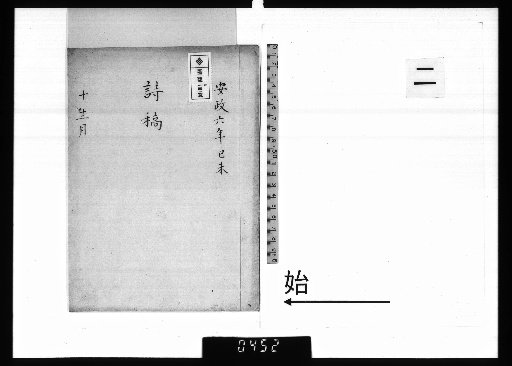 二
安政六年己未
詩稿
十一月
始
0452